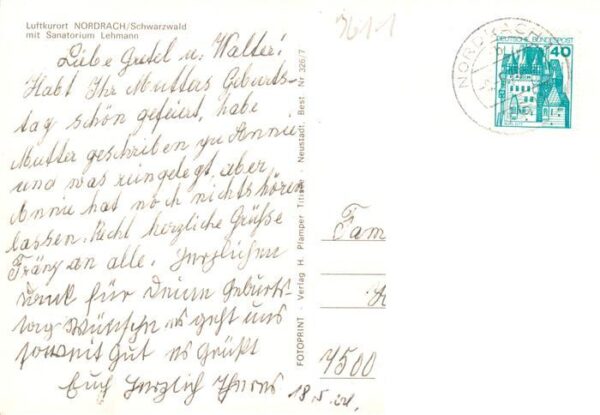 Luftkurort NORDRACH/Schwarzwald
mit Sanatorium Lehmann
Liebe Gretel u. Walter!
Habt Ihr Mutters Geburts-
tag schön gefeiert, habe
Mutter geschrieben zu Annie
und was reingelegt, aber
Annie hat noch nichts hören
lassen. Recht herzliche Grüße
Franz an alle. Herzlichen
Dank für Deine Geburts-
tag Wünsche es geht uns
soweit Gut es Grüßt
Euch Herzlich
18.5.
FOTOPRINT - Verlag H. Pfamper Titisee - Neustadt, Best. Nr 326/7
3611
NORDRACH
DEUTSCHE BUNDESPOST
40
Fam
7500